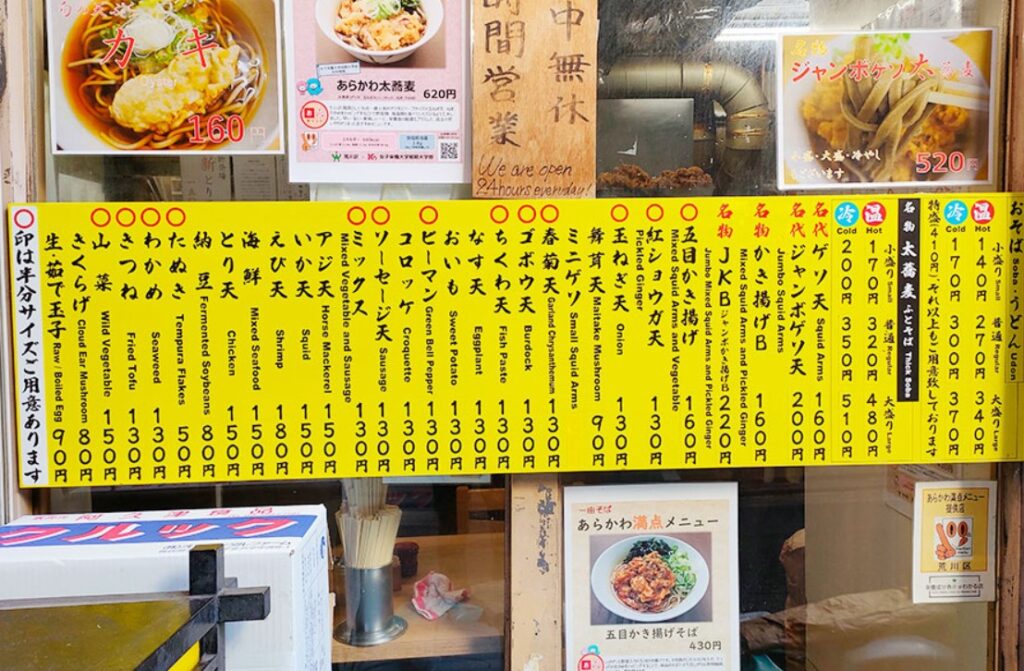 カキ
160
あらかわ太蕎麦 620円
時間営業
中無休
We are open
24hours everyday!
名物
ジャンボゲソ太蕎麦
小盛・大盛・冷やし
もございます
520円
おそば Soba・うどん Udon
小盛り Small 普通 Regular 大盛り Large
温 Hot 140円 270円 340円
冷 Cold 170円 300円 370円
特盛(+410円)それ以上もご用意致しております
名物 太蕎麦 ふとそば Thick Soba
小盛り Small 普通 Regular 大盛り Large
温 Hot 170円 380円 480円
冷 Cold 200円 350円 510円
名代 ゲソ天 Squid Arms 160円
名代 ジャンボゲソ天 Jumbo Squid Arms 200円
名物 かき揚げB Mixed Squid Arms and Pickled Ginger 160円
名物 JKB(ジャンボかき揚げB) Jumbo Mixed Squid Arms and Pickled Ginger 220円
○五目かき揚げ Mixed Squid Arms and Vegetable 160円
○紅ショウガ天 Pickled Ginger 130円
○玉ねぎ天 Onion 130円
舞茸天 Maitake Mushroom 90円
ミニゲソ Small Squid Arms
○春菊天 Garland Chrysanthemum 130円
○ゴボウ天 Burdock 130円
○ちくわ天 Fish Paste 130円
なす天 Eggplant 130円
おいも Sweet Potato 130円
○ピーマン Green Bell Pepper 130円
コロッケ Croquette 130円
○ソーセージ天 Sausage 130円
○ミックス Mixed Vegetable and Sausage 130円
アジ天 Horse Mackerel 150円
いか天 Squid 150円
えび天 Shrimp 180円
海鮮 Mixed Seafood 150円
とり天 Chicken 150円
納豆 Fermented Soybeans 80円
○たぬき Tempura Flakes 50円
○わかめ Seaweed 130円
○きつね Fried Tofu 130円
○山菜 Wild Vegetable 150円
きくらげ Cloud Ear Mushroom 80円
生・茹で玉子 Raw / Boiled Egg 90円
○印は半分サイズご用意あります
一由そば
あらかわ満点メニュー
五目かき揚げそば
430円
あらかわ満点メニュー
提供店
荒川区